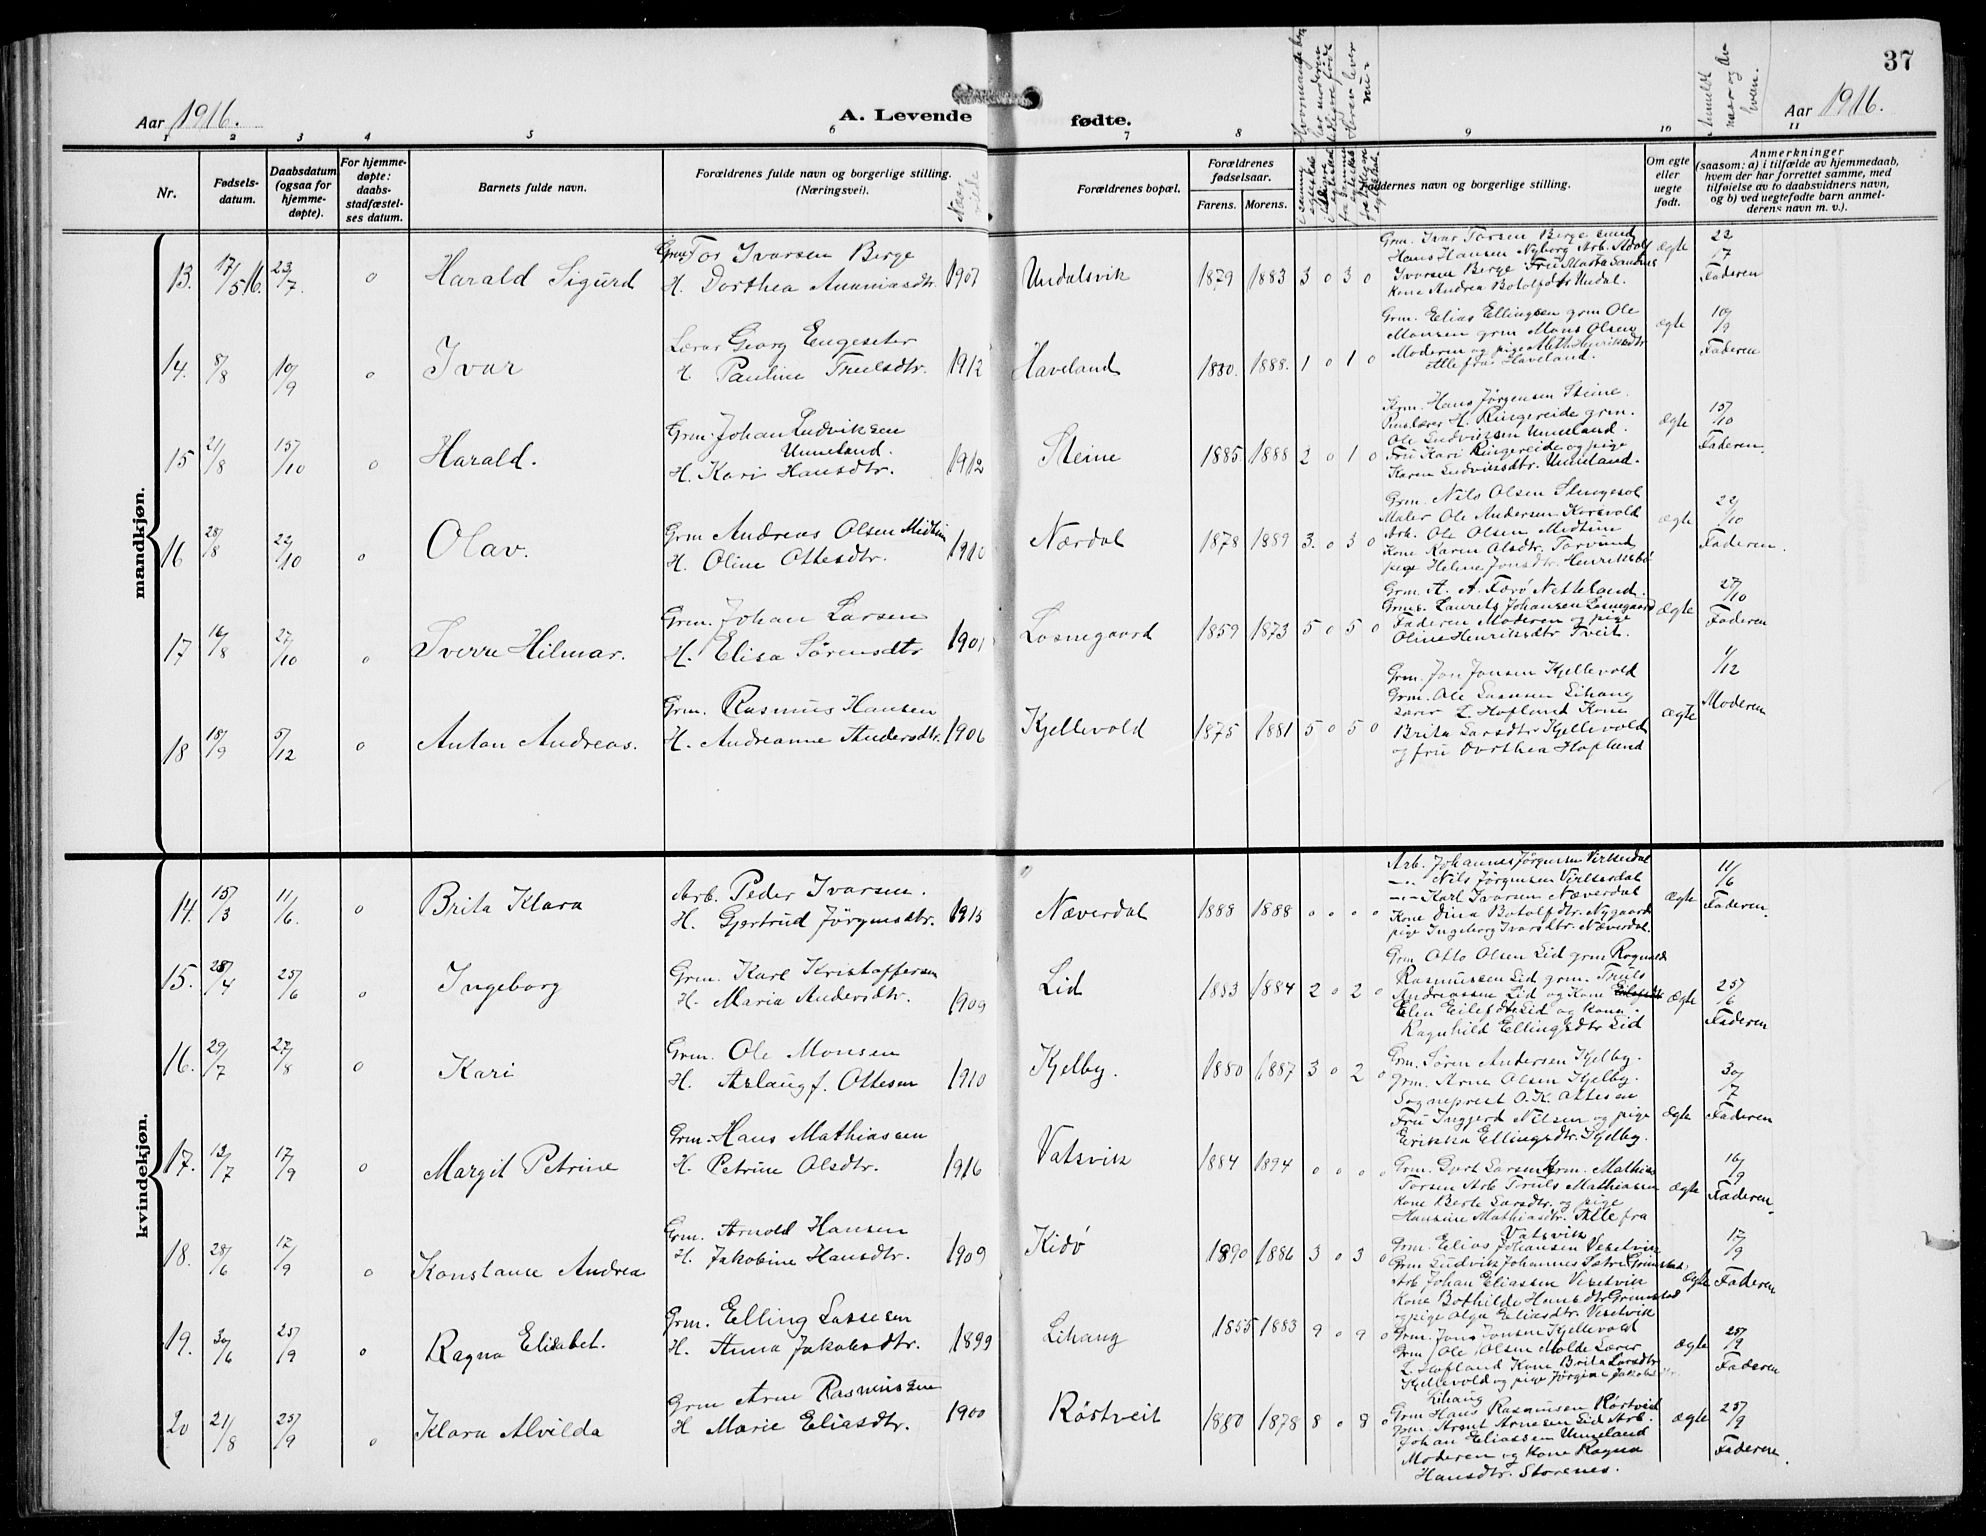 37
Aar 1916.
A. Levende fødte.
Aar 1916.
Anmeldt naar og av hvem.
1 2 3 4 5 6 7 8 9 10 11
Nr.
Fødsels-
datum.
Daabsdatum
(ogsaa for
hjemme-
døpte).
For hjemme-
døpte:
daabs-
stadfæstel-
ses datum.
Barnets fulde navn.
Forældrenes fulde navn og borgerlige stilling.
(Næringsvei).
Naar viede
Forældrenes bopæl.
Forældrenes
fødselsaar.
Farens. Morens.
Faddernes navn og borgerlige stilling.
Om egte
eller
uegte
født.
Anmerkninger
(saasom: a) i tilfælde av hjemmedaab,
hvem der har forrettet samme, med
tilføielse av to daabsvidners navn,
og b) ved uegtefødte barn anmel-
derens navn m. v.).
mandkjøn.
13. 17/5 16. 23/7. o Harald Sigurd
Grm Tor Ivarsen Berge
H. Dorthea Annniasdtr. 1907
Undalsvik 1879 1883 3 o 3 o
Grm. Ivar Torsen Berge smed
Hans Hansen Nyborg Arb. Adolf
Ivarsen Berge Fru Marta
Kone Andrea Botolfdtr Undal.
ægte 22/7 Faderen
14. 8/8 10/9 o Ivar
Lærer Georg Engeseter
H. Pauline Trulsdtr. 1912
Haveland 1880. 1888. 1 o 1 o
Grm. Elias Ellingsen grm Ole
Monsen grm Mons Olsen
Moderen og pige Aleth Henriksdtr
Alle fra Haveland.
ægte 10/9 Faderen
15 21/8 15/10 o Harald.
Grm. Johan Ludviksen
Unneland.
H. Kari Hansdtr. 1912
Steine 1885 1888 2 o 1 o
Grm. Hans Jørgensen Steine
lærer H. Ringereide grm.
Ole Ludviksen Unneland.
Fru Kari Ringereide og pige
Karen Ludviksdtr. Unneland.
ægte 15/10 Faderen.
16 28/8 22/10 o Olav.
Grm Andreas Olsen Midtun
H. Oline Ottesdtr. 1910
Nærdal 1878 1889 3. o 3 o
Grm. Nils Olsen
Maler Ole Andersen Korsvold
Arb. Ole Olsen Midtun
Kone Karen Olsdtr. Torvund
pige Helene Jonsdtr. Henriksbø
ægte 22/10 Faderen.
17 16/8 27/10 o Sverre Hilmar.
Grm. Johan Larsen
H. Elisa Sørensdtr 1901
Losnegaard 1859 1873 5 o 5 o
Grm. A. A. Færø Netteland.
Grms. Laurits Johansen Losnegaard
Faderen Moderen og pige
Oline Henriksdtr Tveit.
ægte 27/10 Faderen
18 15/9 5/12 o Anton Andreas.
Grm. Rasmus Hansen
H. Andreanne Andersdtr. 1906
Kjellevold 1875 1881 5 o 5 o
Grm. Jon Jonsen Kjellevold
Grm. Ole Lassesen Lihang
Lærer L. Hopland Kone
Brita Larsdtr Kjellevold
og fru Dorthea Hopland
ægte 1/12 Moderen
kvindekjøn.
14. 15/3 11/6. o Brita Klara
Arb. Peder Ivarsen.
H. Gjertrud Jørgensdtr. 1915
Næverdal 1888 1888 o o o o
Arb. Johannes Jørgensen Virkesdal
—"— Nils Jørgensen Virkesdal
—"— Karl Ivarsen Næverdal
Kone Dina Botolfdtr. Nygaard
pige Ingeborg Ivarsdtr. Næverdal.
ægte 11/6 Faderen.
15. 28/4 25/6 o Ingeborg
Grm. Karl Kristoffersen
H. Maria Andersdtr. 1909
Lid 1883 1884 2 o 2 o
Grm Otto Olsen Lid grm Rognald
Rasmussen Lid grm. Truls
Andreassen Lid og Kone
Elin Eilefdtr Lid og kone
Ragnhild Ellingsdtr Lid
ægte 25/6 Faderen
16. 29/7 27/8 o Kari
Grm. Ole Monsen
H. Aslaug f. Ottesen 1910
Kjelby. 1880 1887 3 o 2 o
Grm. Søren Andersen Kjelby.
grm. Arne Olsen Kjelby.
Sogneprest O. K. Ottesen
Fru Ingjerd Nilsen og pige
Erikka Ellingsdtr. Kjelby.
ægte 30/7 Faderen
17. 13/7 17/9 o Margit Petrine
Grm. Hans Mathiassen
H. Petrine Olsdtr. 1916
Vatsvik 1884 1894 o o o o
Grm. Gort Larsen Grm. Mathias
Torsen Arb Truls Mathiassen
Kone Berte Larsdtr. og pige
Hansine Mathiasdtr. Alle fra
Vatsvik
ægte 16/9 Faderen.
18. 28/6 17/9 o Konstanse Andrea
Grm. Arnold Hansen
H. Jakobine Hansdtr. 1909
Kidø 1890 1886 3 o 3 o
Grm. Elias Johansen Vesetvik
Grm Ludvik Johannes Sætre Grimstad
Arb Johan Eliassen Vesetvik
Kone Bothilde Hansdtr Grimstad
og pige Olga Eliasdtr. Vesetvik
ægte 17/9 Faderen
19. 30/6 25/9 o Ragna Elisabet.
Grm. Elling Lassesen
H. Anna Jakobsdtr. 1899
Lihang 1855 1883 9 o 9 o
Grm. Jon Jonsen Kjellevold
Grm Ole Olsen Molde Lærer
L. Hopland Kone Brita Larsdtr
Kjellevold og pige Jørgine Jakobsdtr
Lihang
ægte 25/9 Faderen
20 21/8 25/9 o Klara Alvilda
Grm Arne Rasmussen
H Marie Eliasdtr. 1900
Røstveit 1880 1878 8 o 8 o
Grm Hans Rasmussen Røstveit
Grm. Arent Arnesen Lid Arb.
Johan Eliassen Unneland
Moderen og Kone Ragna
Hansdtr. Storenes.
ægte 25/9 Faderen.